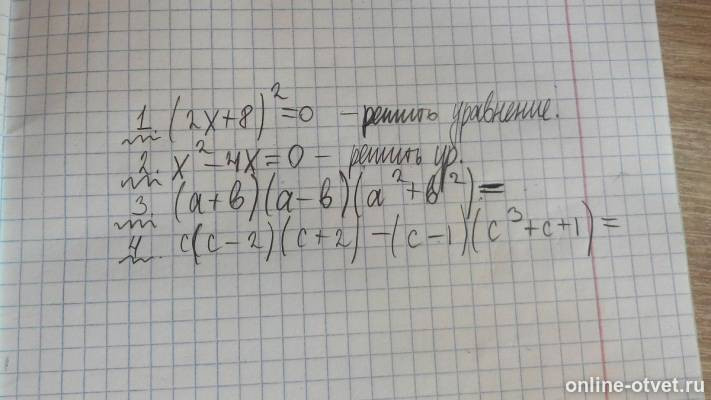 1. (2x+8)² =0 – решить уравнение.
2. x² – 4x = 0 – решить ур.
3. (a+b)(a-b)(a²+b²) =
4. c(c-2)(c+2) – (c-1)(c³+c+1) =
online-otvet.ru